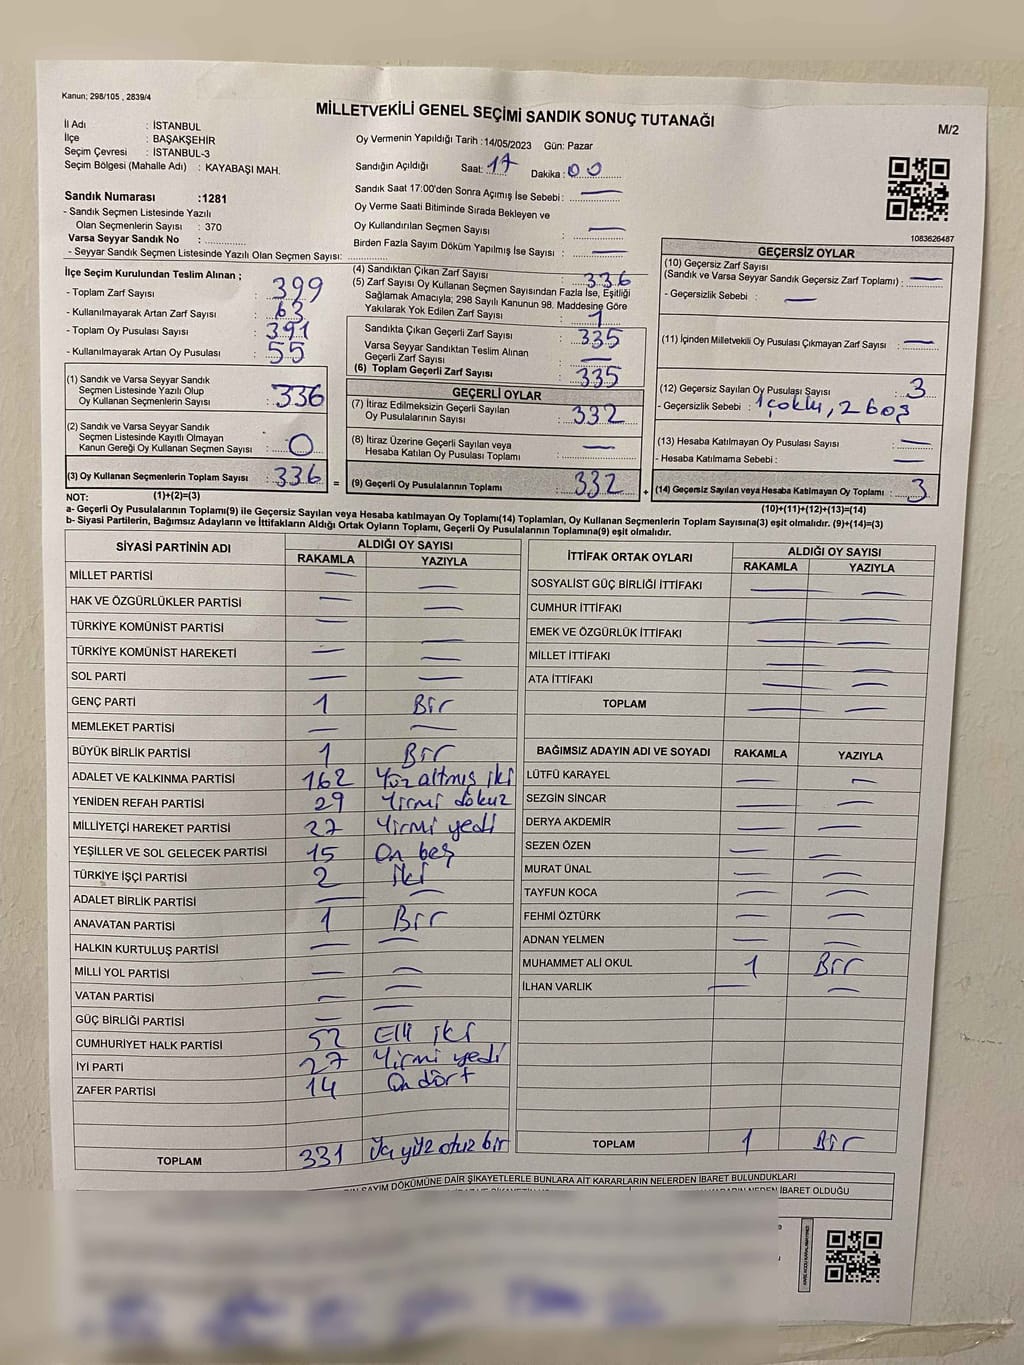 Kanun; 298/105 , 2839/4
MİLLETVEKİLİ GENEL SEÇİMİ SANDIK SONUÇ TUTANAĞI
M/2
İl Adı : İSTANBUL
İlçe : BAŞAKŞEHİR
Seçim Çevresi : İSTANBUL-3
Seçim Bölgesi (Mahalle Adı) : KAYABAŞI MAH.
Sandık Numarası :1281
- Sandık Seçmen Listesinde Yazılı
Olan Seçmenlerin Sayısı : 370
Varsa Seyyar Sandık No :
- Seyyar Sandık Seçmen Listesinde Yazılı Olan Seçmen Sayısı:
Oy Vermenin Yapıldığı Tarih :14/05/2023 Gün: Pazar
Sandığın Açıldığı Saat: 17 Dakika : 00
Sandık Saat 17:00'den Sonra Açımış İse Sebebi : —
Oy Verme Saati Bitiminde Sırada Bekleyen ve
Oy Kullandırılan Seçmen Sayısı : —
Birden Fazla Sayım Döküm Yapılmış İse Sayısı : —
1083626487
İlçe Seçim Kurulundan Teslim Alınan ;
- Toplam Zarf Sayısı : 399
- Kullanılmayarak Artan Zarf Sayısı : 63
- Toplam Oy Pusulası Sayısı : 391
- Kullanılmayarak Artan Oy Pusulası : 55
(1) Sandık ve Varsa Seyyar Sandık
Seçmen Listesinde Yazılı Olup
Oy Kullanan Seçmenlerin Sayısı : 336
(2) Sandık ve Varsa Seyyar Sandık
Seçmen Listesinde Kayıtlı Olmayan
Kanun Gereği Oy Kullanan Seçmen Sayısı : 0
(3) Oy Kullanan Seçmenlerin Toplam Sayısı : 336 =
(4) Sandıktan Çıkan Zarf Sayısı : 336
(5) Zarf Sayısı Oy Kullanan Seçmen Sayısından Fazla İse, Eşitliği
Sağlamak Amacıyla; 298 Sayılı Kanunun 98. Maddesine Göre
Yakılarak Yok Edilen Zarf Sayısı : 1
Sandıkta Çıkan Geçerli Zarf Sayısı : 335
Varsa Seyyar Sandıktan Teslim Alınan
Geçerli Zarf Sayısı : —
(6) Toplam Geçerli Zarf Sayısı : 335
GEÇERLİ OYLAR
(7) İtiraz Edilmeksizin Geçerli Sayılan
Oy Pusulalarının Sayısı : 332
(8) İtiraz Üzerine Geçerli Sayılan veya
Hesaba Katılan Oy Pusulası Toplamı : —
(9) Geçerli Oy Pusulalarının Toplamı : 332 +
GEÇERSİZ OYLAR
(10) Geçersiz Zarf Sayısı
(Sandık ve Varsa Seyyar Sandık Geçersiz Zarf Toplamı) : —
- Geçersizlik Sebebi : —
(11) İçinden Milletvekili Oy Pusulası Çıkmayan Zarf Sayısı : —
(12) Geçersiz Sayılan Oy Pusulası Sayısı : 3
- Geçersizlik Sebebi : 1 çoklu, 2 boş
(13) Hesaba Katılmayan Oy Pusulası Sayısı : —
- Hesaba Katılmama Sebebi : —
(14) Geçersiz Sayılan veya Hesaba Katılmayan Oy Toplamı : 3
NOT: (1)+(2)=(3)
(10)+(11)+(12)+(13)=(14)
a- Geçerli Oy Pusulalarının Toplamı(9) ile Geçersiz Sayılan veya Hesaba katılmayan Oy Toplamı(14) Toplamları, Oy Kullanan Seçmenlerin Toplam Sayısına(3) eşit olmalıdır. (9)+(14)=(3)
b- Siyasi Partilerin, Bağımsız Adayların ve İttifakların Aldığı Ortak Oyların Toplamı, Geçerli Oy Pusulalarının Toplamına(9) eşit olmalıdır.
SİYASİ PARTİNİN ADI ALDIĞI OY SAYISI
RAKAMLA YAZIYLA
MİLLET PARTİSİ — —
HAK VE ÖZGÜRLÜKLER PARTİSİ — —
TÜRKİYE KOMÜNİST PARTİSİ — —
TÜRKİYE KOMÜNİST HAREKETİ — —
SOL PARTİ — —
GENÇ PARTİ 1 Bir
MEMLEKET PARTİSİ — —
BÜYÜK BİRLİK PARTİSİ 1 Bir
ADALET VE KALKINMA PARTİSİ 162 Yüz altmış iki
YENİDEN REFAH PARTİSİ 29 Yirmi dokuz
MİLLİYETÇİ HAREKET PARTİSİ 27 Yirmi yedi
YEŞİLLER VE SOL GELECEK PARTİSİ 15 On beş
TÜRKİYE İŞÇİ PARTİSİ 2 iki
ADALET BİRLİK PARTİSİ — —
ANAVATAN PARTİSİ 1 Bir
HALKIN KURTULUŞ PARTİSİ — —
MİLLİ YOL PARTİSİ — —
VATAN PARTİSİ — —
GÜÇ BİRLİĞİ PARTİSİ — —
CUMHURİYET HALK PARTİSİ 52 Elli iki
İYİ PARTİ 27 Yirmi yedi
ZAFER PARTİSİ 14 On dört
TOPLAM 331 Üç yüz otuz bir
İTTİFAK ORTAK OYLARI ALDIĞI OY SAYISI
RAKAMLA YAZIYLA
SOSYALİST GÜÇ BİRLİĞİ İTTİFAKI — —
CUMHUR İTTİFAKI — —
EMEK VE ÖZGÜRLÜK İTTİFAKI — —
MİLLET İTTİFAKI — —
ATA İTTİFAKI — —
TOPLAM — —
BAĞIMSIZ ADAYIN ADI VE SOYADI RAKAMLA YAZIYLA
LÜTFÜ KARAYEL — —
SEZGİN SİNCAR — —
DERYA AKDEMİR — —
SEZEN ÖZEN — —
MURAT ÜNAL — —
TAYFUN KOCA — —
FEHMİ ÖZTÜRK — —
ADNAN YELMEN — —
MUHAMMET ALİ OKUL 1 Bir
İLHAN VARLIK — —
TOPLAM 1 Bir
SAYIM DÖKÜMÜNE DAİR ŞİKAYETLERLE BUNLARA AİT KARARLARIN NELERDEN İBARET BULUNDUKLARI
KARARIN NEDEN İBARET OLDUĞU